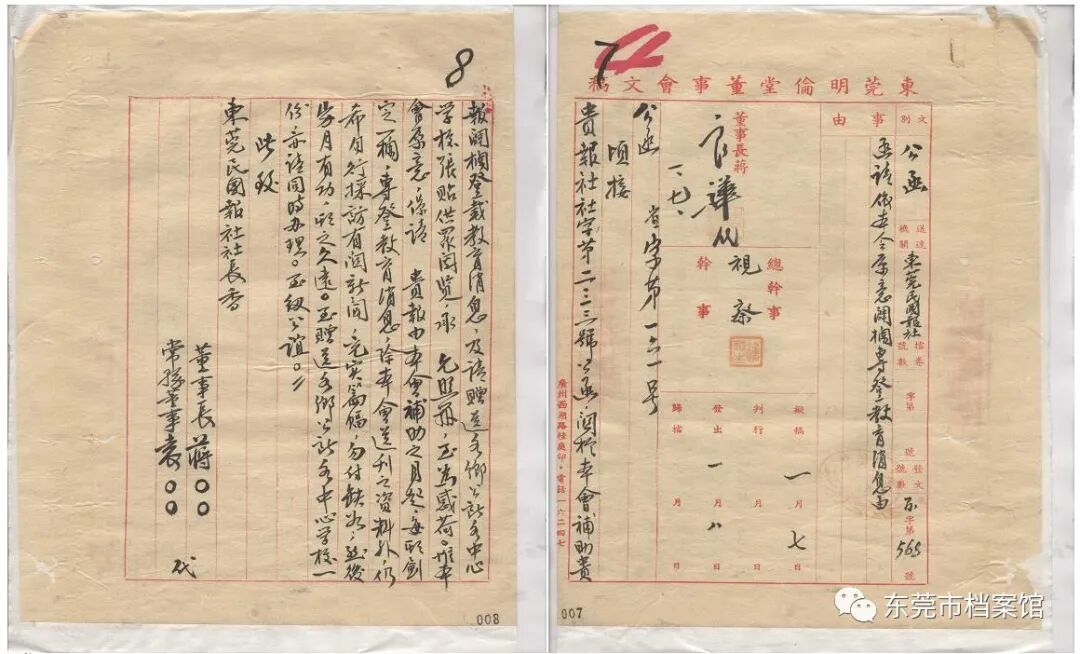 7
東莞明倫堂董事會文稿
文別
公函
送達機關
東莞民國報社
檔卷號數
字第
號
發文號數
字第
565
號
事由
函請依本會原意闢欄專登教育消息由
董事長蔣
總幹事
幹事
擬稿
一月七日
判行
月
日
發出
一月八日
歸檔
月
日
公函
字第一三一号
頃接
貴報社社字第二三三號公函關於本會補助貴
廣州西湖路
印·電話一六二四七
007
8
報闢欄登載教育消息,及請贈送各鄉公所各中心
学校張貼供眾閱览,承 允照辦,至為感荷。惟本
會原意,係請 貴報由本會補助之月起,每期劃
定一欄,專登教育消息,除本會送刊之資料外,仍
希自行採訪有関新聞,充实篇幅,勿付缺如,
月有功,期之久遠。至贈送各鄉公所各中心学校一
份亦請同時办理。至紉公誼。
此致
東莞民國報社社長香
董事長蔣○○
常務董事袁○○
代
008
东莞市档案馆